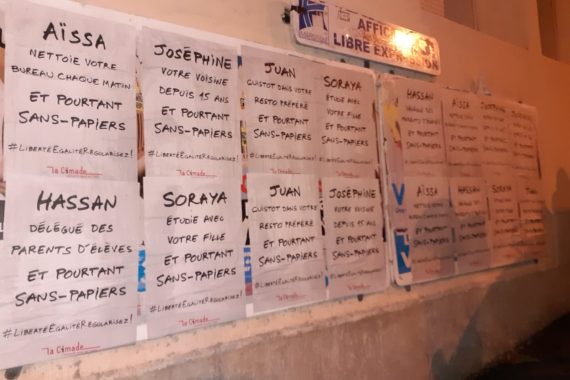 AFFICHAGE
LIBRE EXPRESSION
AÏSSA
NETTOIE VOTRE
BUREAU CHAQUE MATIN
ET POURTANT
SANS-PAPIERS
#LIBERTÉEGALITÉREGULARISEZ!
la Cimade
JOSÉPHINE
VOTRE VOISINE
DEPUIS 15 ANS
ET POURTANT
SANS-PAPIERS
#LIBERTÉEGALITÉREGULARISEZ!
la Cimade
JUAN
CUISTOT DANS VOTRE
RESTO PRÉFÉRÉ
ET POURTANT
SANS-PAPIERS
#LIBERTÉEGALITÉREGULARISEZ!
la Cimade
SORAYA
ÉTUDIE AVEC
VOTRE FILLE
ET POURTANT
SANS-PAPIERS
#LIBERTÉEGALITÉREGULARISEZ!
HASSAN
DÉLÉGUÉ DES
PARENTS D'ÉLÈVES
ET POURTANT
SANS-PAPIERS
#LIBERTÉEGALITÉREGULARISEZ!
la Cimade
SORAYA
ÉTUDIE AVEC
VOTRE FILLE
ET POURTANT
SANS-PAPIERS
#LIBERTÉEGALITÉREGULARISEZ!
la Cimade
JUAN
CUISTOT DANS VOTRE
RESTO PRÉFÉRÉ
ET POURTANT
SANS-PAPIERS
#LIBERTÉEGALITÉREGULARISEZ!
la Cimade
JOSÉPHINE
VOTRE VOISINE
DEPUIS 15 ANS
ET POURTANT
SANS-PAPIERS
#LIBERTÉEGALITÉREGULARISEZ!
la Cimade
HASSAN
ET POURTANT
SANS-PAPIERS
AÏSSA
ET POURTANT
SANS-PAPIERS
JOSÉPHINE
ET POURTANT
SANS-PAPIERS
AÏSSA
NETTOIE VOTRE
ET POURTANT
SANS-PAPIERS
HASSAN
ET POURTANT
SANS-PAPIERS
SORAYA
ET POURTANT
SANS-PAPIERS